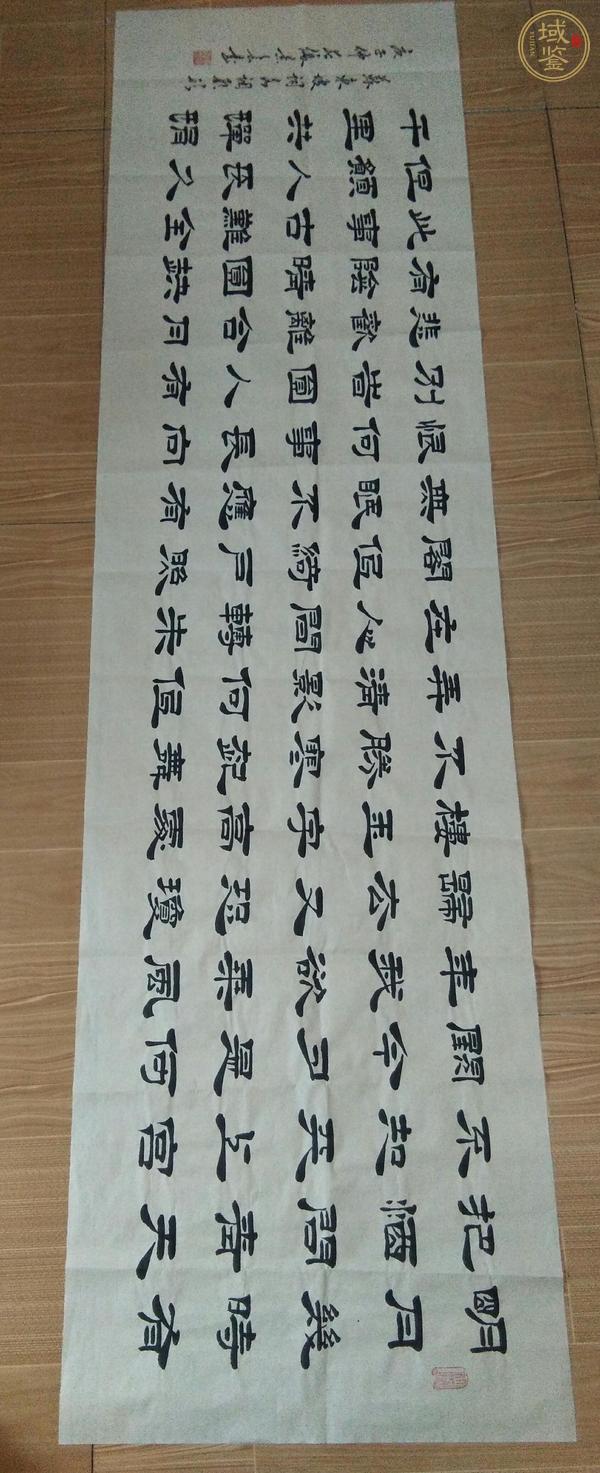 明月幾時有
把酒問青天
不知天上宫
闕今夕是何
年我欲乘風
歸去又恐瓊
樓玉宇高處
不勝寒起舞
弄清影何似
在人間轉朱
閣低綺戶照
無眠不應有
恨何事長向
别時圓人有
悲歡離合月
有陰晴圓缺
此事古難全
但願人長久
千里共嬋娟
蘇東坡詞
庚子
域鉴
YUJIAN